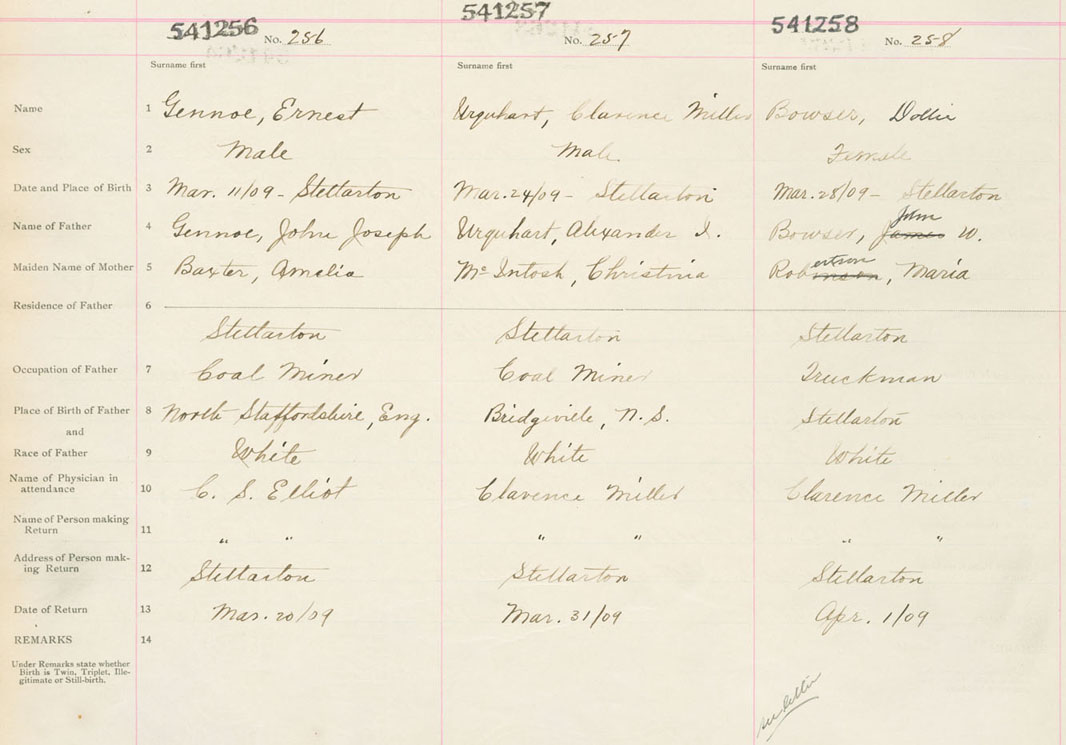 541256 No. 256
541257 No. 257
541258 No. 258
Surname first Surname first Surname first
Name 1 Gennoe, Ernest Urquhart, Clarence Miller Bowser, Dollie
Sex 2 Male Male Female
Date and Place of Birth 3 Mar. 11/09 - Stellarton Mar. 24/09 - Stellarton Mar. 28/09 - Stellarton
John
Name of Father 4 Gennoe, John Joseph Urquhart, Alexander I. Bowser, James W.
ertson
Maiden Name of Mother 5 Baxter, Amelia McIntosh, Christina Robinson, Maria
Residence of Father 6
Stellarton Stellarton Stellarton
Occupation of Father 7 Coal Miner Coal Miner Truckman
Place of Birth of Father 8 North Staffordshire, Eng. Bridgeville, N.S. Stellarton
and
Race of Father 9 White White White
Name of Physician in
attendance 10 C. S. Elliot Clarence Miller Clarence Miller
Name of Person making
Return 11 " " " " " "
Address of Person mak-
ing Return 12 Stellarton Stellarton Stellarton
Date of Return 13 Mar. 20/09 Mar. 31/09 Apr. 1/09
REMARKS 14
Under Remarks state whether
Birth is Twin, Triplet, Ille-
gitimate or Still-birth.
see letter